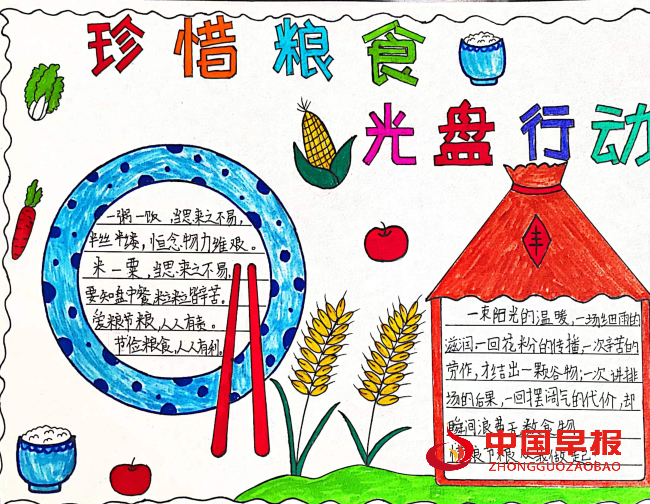 珍惜粮食
光盘行动
一粥一饭，当思来之不易，
半丝半缕，恒念物力维艰。
米一粟，当思来之不易，
要知盘中餐，粒粒皆辛苦。
爱粮节粮，人人有责。
节俭粮食，人人有利。
丰
一束阳光的温暖，一场细雨的
滋润一回花粉的传播，一次辛苦的
劳作，才结出一颗谷物；一次讲排
场的后果，一回摆阔气的代价，却
瞬间浪费无数食物
惜粮节粮从我做起
中国早报
ZHONGGUOZAOBAO